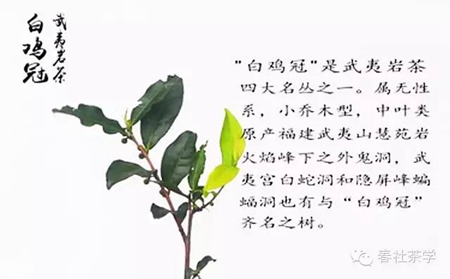 武夷岩茶
白鸡冠
"白鸡冠"是武夷岩茶
四大名丛之一。属无性
系，小乔木型，中叶类
原产福建武夷山慧苑岩
火焰峰下之外鬼洞，武
夷宫白蛇洞和隐屏峰蝙
蝠洞也有与“白鸡冠”
齐名之树。
春社茶学